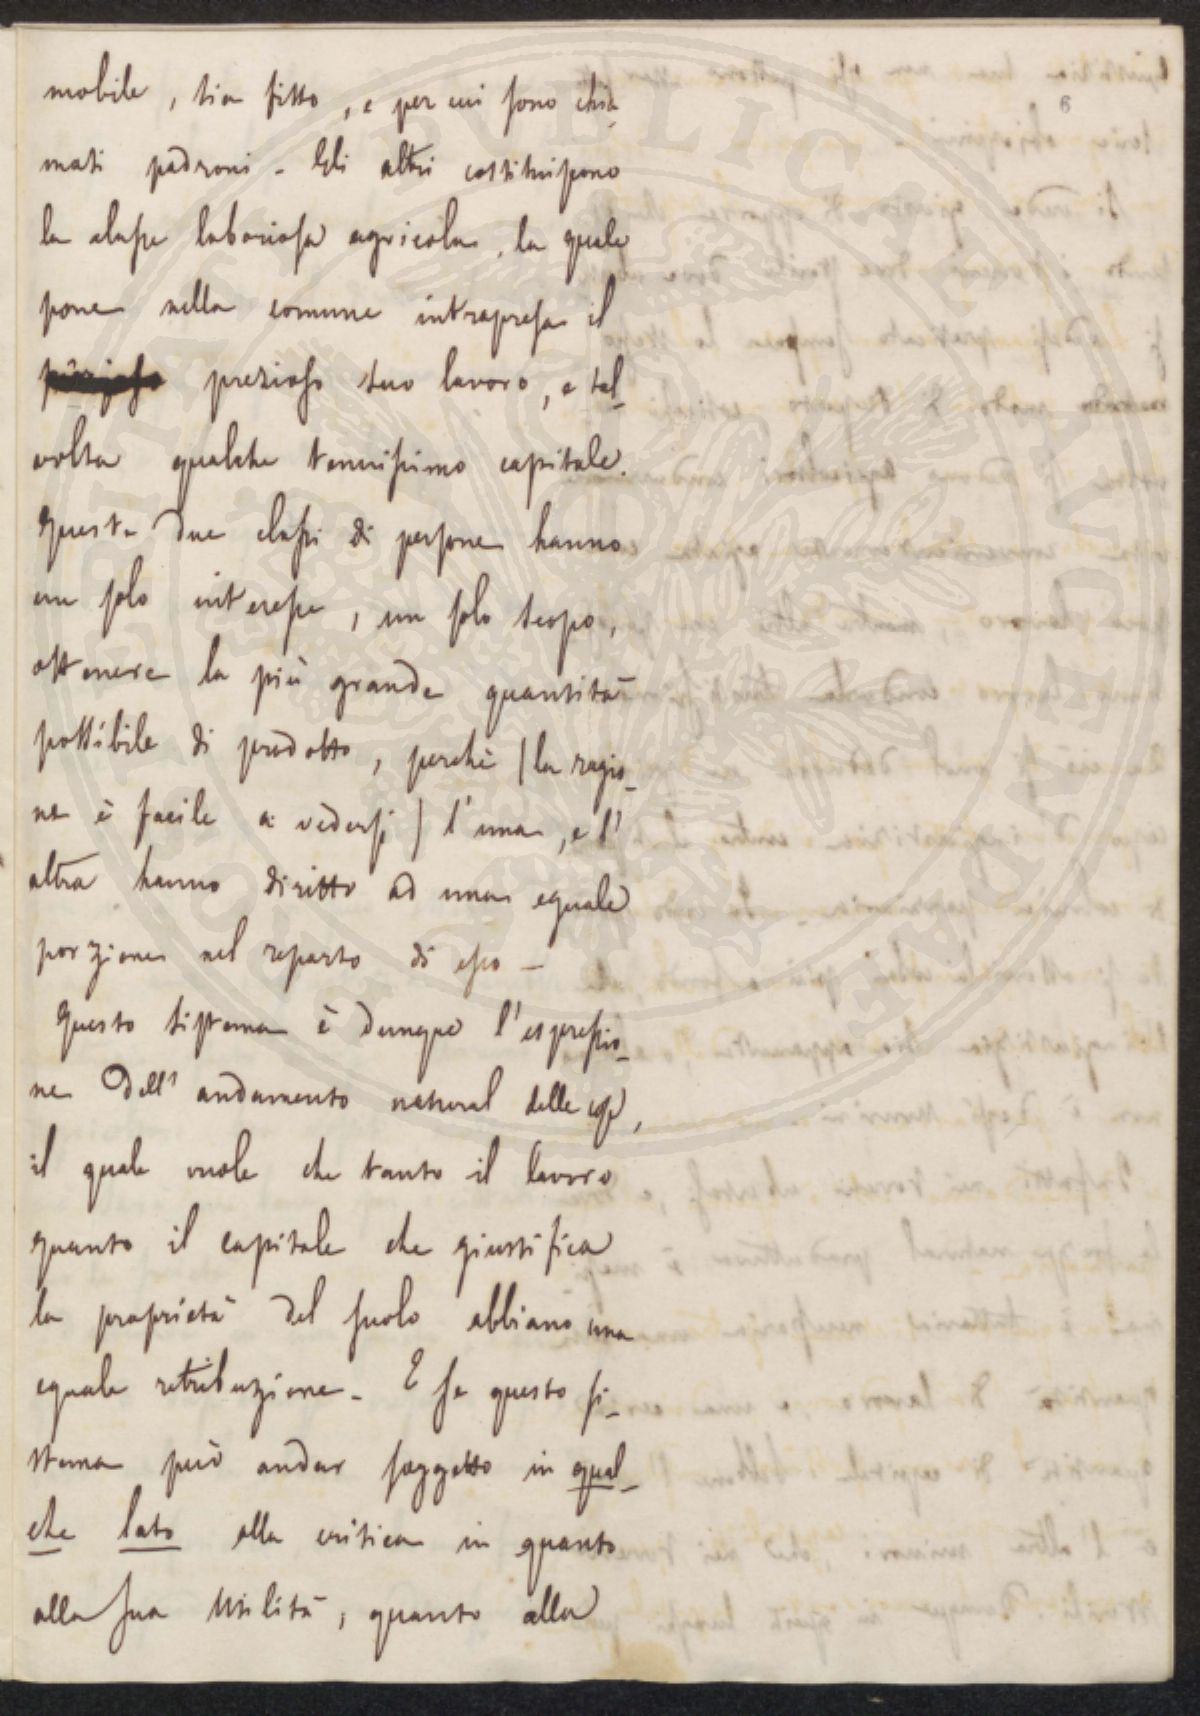 6
mobile, sia fitto, e per cui sono chia-
mati padroni - Gli altri costituiscono
la classe laboriosa agricola, la quale
pone nella comune intrapresa il
prezioso suo lavoro, e tal-
volta qualche tenuissimo capitale.
Queste due classi di persone hanno
un solo interesse, un solo scopo,
ottenere la più grande quantità
possibile di prodotto, perchè (la ragio-
ne è facile a vedersi) l'una, e l'
altra hanno diritto ad una eguale
porzione nel reparto di esso -
Questo sistema è dunque l'espressio-
ne dell'andamento natural delle cose,
il quale vuole che tanto il lavoro
quanto il capitale che giustifica
la proprietà del suolo abbiano una
eguale retribuzione - E se questo si-
stema può andar soggetto in qual-
che lato alla critica in quanto
alla sua utilità, quanto alla